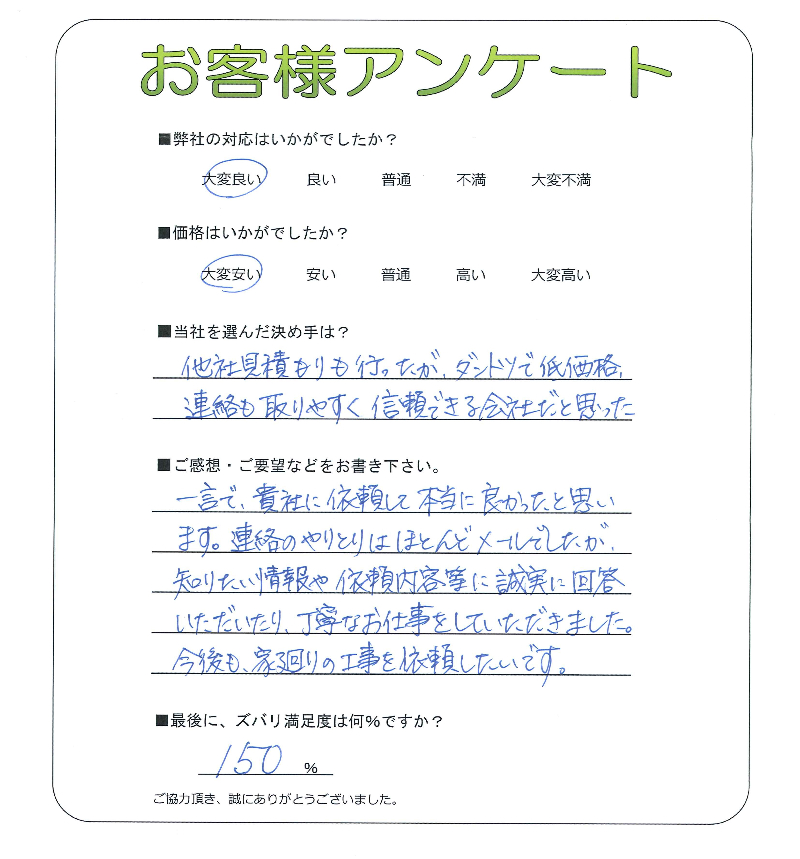 お客様アンケート
■弊社の対応はいかがでしたか？
大変良い 良い 普通 不満 大変不満
■価格はいかがでしたか？
大変安い 安い 普通 高い 大変高い
■当社を選んだ決め手は？
他社見積もりも行ったが、ダントツで低価格、
連絡も取りやすく信頼できる会社だと思った
■ご感想・ご要望などをお書き下さい。
一言で、貴社に依頼して本当に良かったと思い
ます。連絡のやりとりはほとんどメールでしたが、
知りたい情報や依頼内容等に誠実に回答
いただいたり、丁寧なお仕事をしていただきました。
今後も、家廻りの工事を依頼したいです。
■最後に、ズバリ満足度は何％ですか？
150 %
ご協力頂き、誠にありがとうございました。